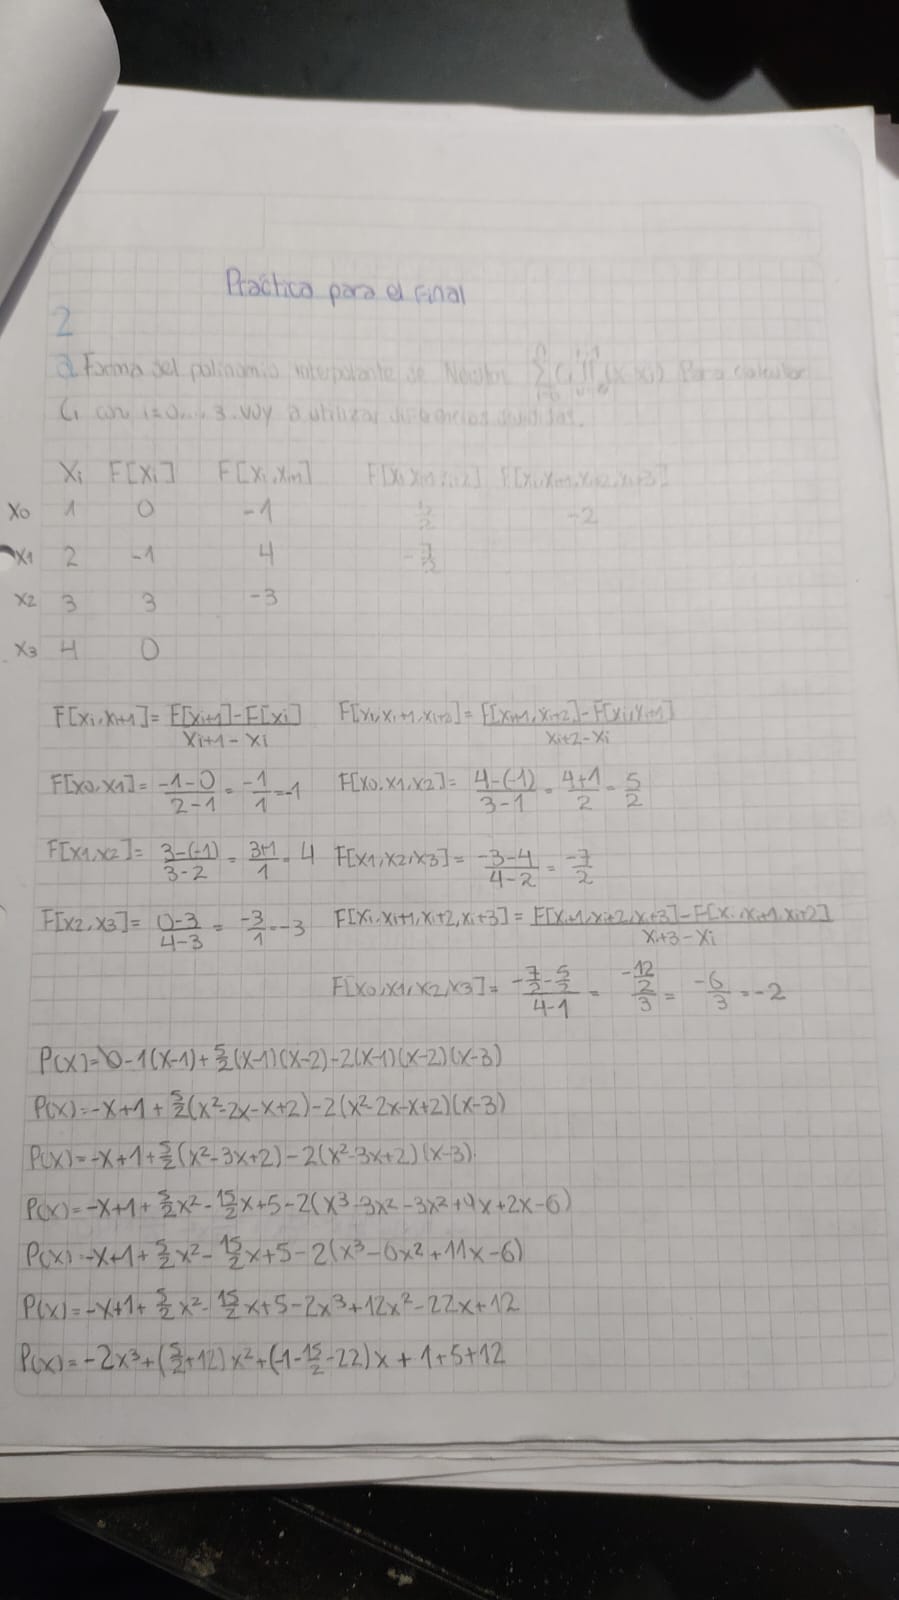 Práctica para el Final
2
a) Forma del polinomio interpolante de Newton Para calcular
Ci con i=0...3. voy a utilizar diferencias divididas.
Xi F[Xi] F[Xi,Xi+1] F[Xi,Xi+1,Xi+2] F[Xi,Xi+1,Xi+2,Xi+3]
X0 1 0 -1 5/2 -2
X1 2 -1 4 -7/2
X2 3 3 -3
X3 4 0
F[Xi,Xi+1]= (F[Xi+1]-F[Xi])/(Xi+1-Xi) F[Xi,Xi+1,Xi+2]= (F[Xi+1,Xi+2]-F[Xi,Xi+1])/(Xi+2-Xi)
F[X0,X1]= (-1-0)/(2-1) = -1/1 = -1 F[X0,X1,X2]= (4-(-1))/(3-1) = (4+1)/2 = 5/2
F[X1,X2]= (3-(-1))/(3-2) = (3+1)/1 = 4 F[X1,X2,X3]= (-3-4)/(4-2) = -7/2
F[X2,X3]= (0-3)/(4-3) = -3/1 = -3 F[Xi,Xi+1,Xi+2,Xi+3]= (F[Xi+1,Xi+2,Xi+3]-F[Xi,Xi+1,Xi+2])/(Xi+3-Xi)
F[X0,X1,X2,X3]= (-7/2-5/2)/(4-1) = (-12/2)/3 = -6/3 = -2
P(X)=0-1(X-1)+5/2(X-1)(X-2)-2(X-1)(X-2)(X-3)
P(X)=-X+1+5/2(X²-2X-X+2)-2(X²-2X-X+2)(X-3)
P(X)=-X+1+5/2(X²-3X+2)-2(X²-3X+2)(X-3)
P(X)=-X+1+5/2X²-15/2X+5-2(X³-3X²-3X²+9X+2X-6)
P(X)=-X+1+5/2X²-15/2X+5-2(X³-6X²+11X-6)
P(X)=-X+1+5/2X²-15/2X+5-2X³+12X²-22X+12
P(X)=-2X³+(5/2+12)X²+(-1-15/2-22)X+1+5+12